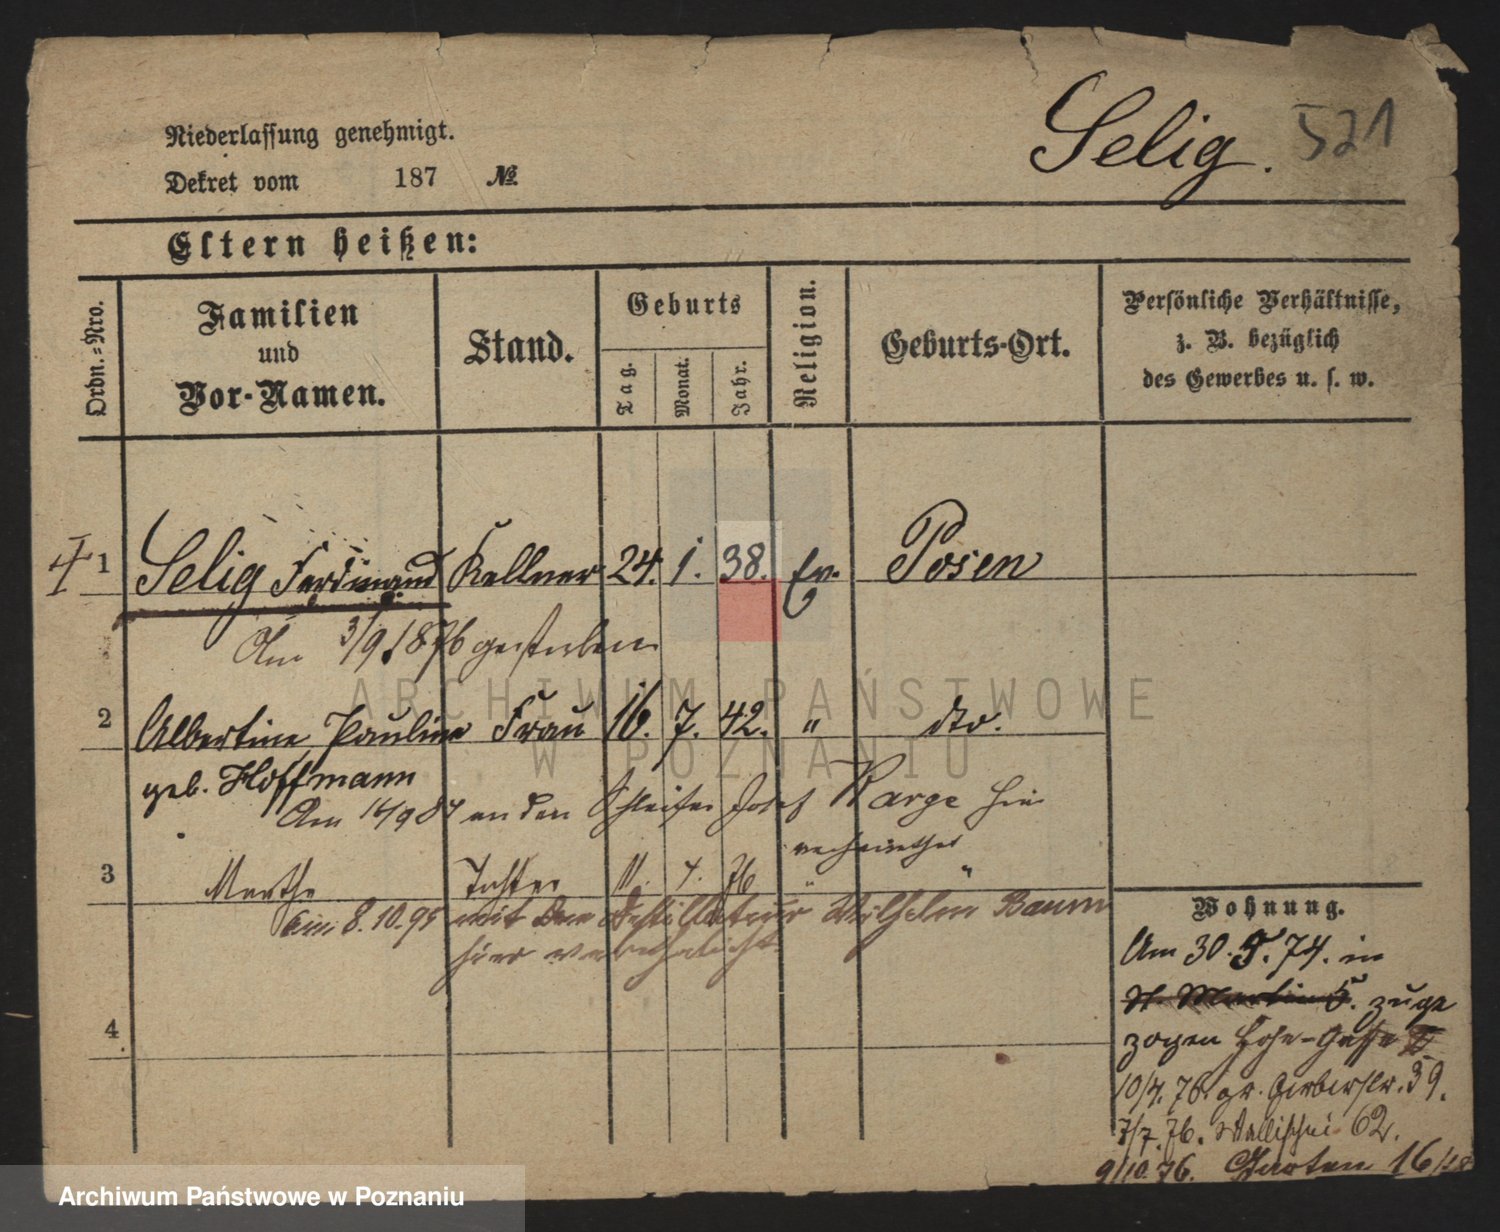 Niederlassung genehmigt.
Dekret vom 187 №
Selig. 521
Eltern heißen:
Ordn.=Nro.
Familien
und
Vor-Namen.
Stand.
Geburts
Tag.
Monat.
Jahr.
Religion.
Geburts-Ort.
Persönliche Verhältnisse,
z. B. bezüglich
des Gewerbes u. s. w.
1 Selig Ferdinand Kellner 24. 1. 38. Ev. Posen
Am 3/9.1876 gestorben
2 Albertine Pauline Frau 16. 7. 42. " dto.
geb. Hoffmann
Am 14/9 84 an den Schleifer Josef Karge hier
verheirathet
3 Marthe Tochter 11. 4. 76 " "
am 8.10.95 mit dem Destillateur Wilhelm Baum
hier verehelicht.
4
Wohnung.
Am 30.5.74. in
St. Martin 5. zuge
zogen Hohe-Gasse
10/4. 76. gr. Gerberstr. 39.
7/7. 76. Wallischei 62.
9/10. 76. Garten 16/18
ARCHIWUM PAŃSTWOWE
W POZNANIU
Archiwum Państwowe w Poznaniu